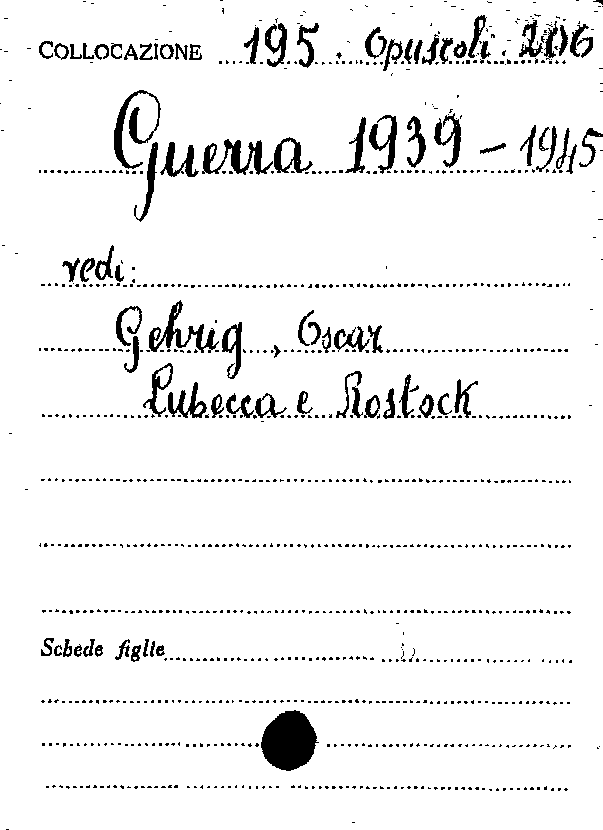 COLLOCAZIONE 195. Opuscoli. 206
Guerra 1939-1945
vedi:
Gehrig, Oscar
Lubecca e Rostock
Schede figlie